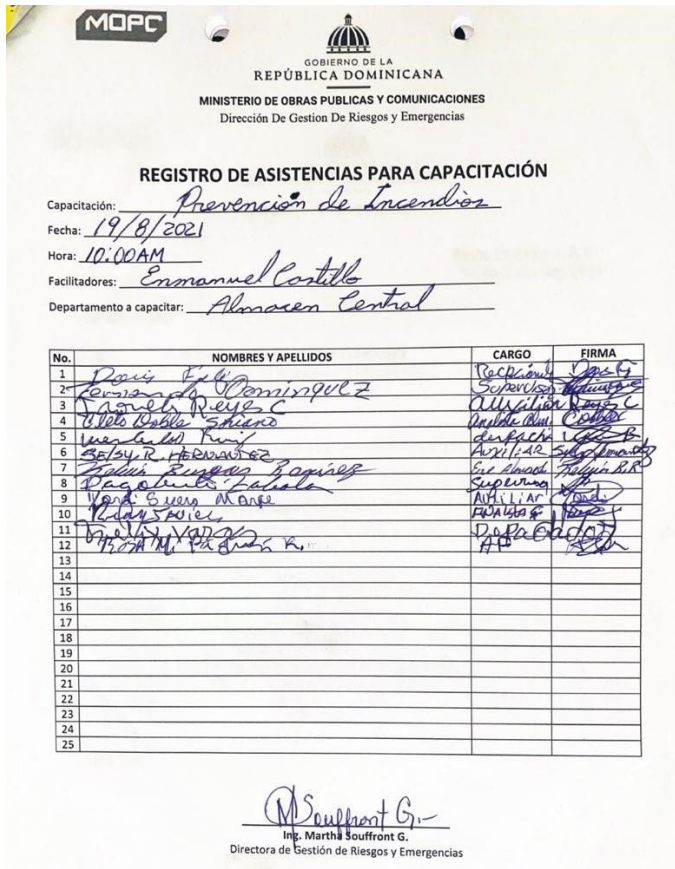 MOPC
GOBIERNO DE LA
REPÚBLICA DOMINICANA
MINISTERIO DE OBRAS PUBLICAS Y COMUNICACIONES
Dirección De Gestion De Riesgos y Emergencias
REGISTRO DE ASISTENCIAS PARA CAPACITACIÓN
Capacitación: Prevención de Incendios
Fecha: 19/8/2021
Hora: 10:00AM
Facilitadores: Enmanuel Castillo
Departamento a capitar: Almacen Central
No. NOMBRES Y APELLIDOS CARGO FIRMA
1 Doris
2 Fernando Dominguez Supervisor
3 Reyes C Auxiliar Reyes C
4 Cleto Doble
5
6 BELSY R. HERNANDEZ AUXILIAR
7 Kelvin Burgos Ramirez Kelvin B.R
8 Dagoberto Supervisor
9 Yordi Suero Monte AUXILIAR Yordi
10 ANALISTA
11 Vargas
12 Rosa M.
13
14
15
16
17
18
19
20
21
22
23
24
25
M Souffront G.
Ing. Martha Souffront G.
Directora de Gestión de Riesgos y Emergencias